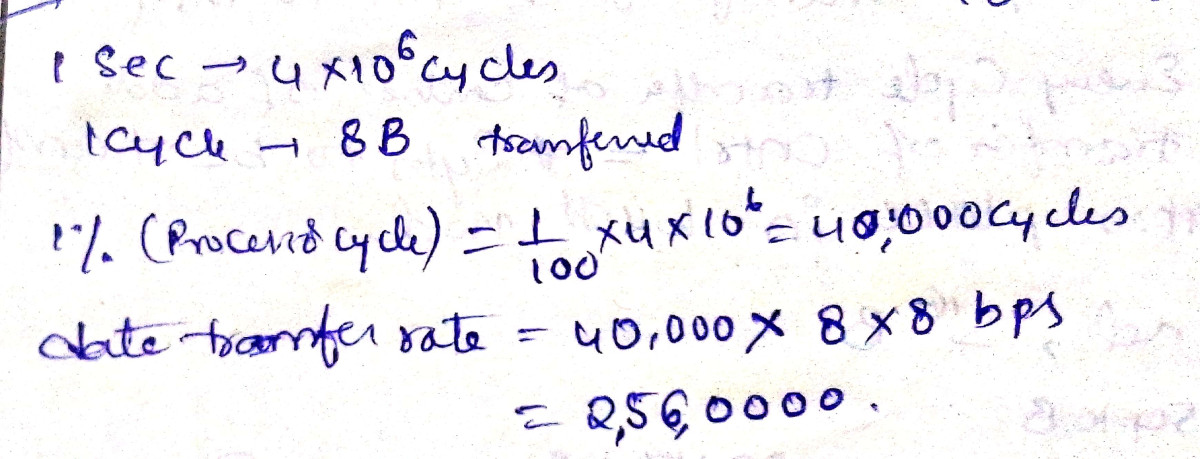 1 Sec → 4 × 10⁶ cycles
1 Cycle → 8B transferred
1% (Processor cycle) = 1/100 × 4 × 10⁶ = 40,000 cycles
data transfer rate = 40,000 × 8 × 8 bps
= 2,56,0000.